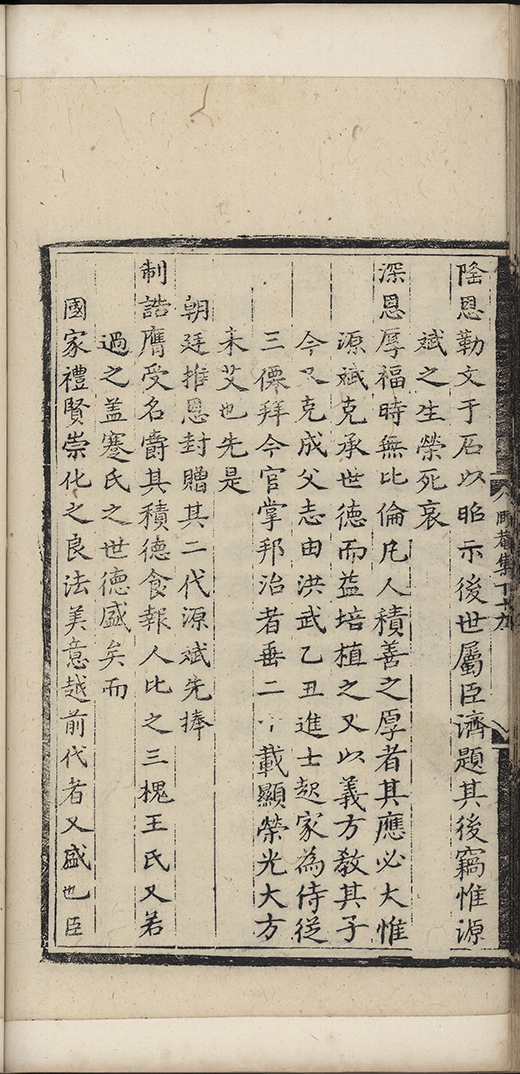 隆恩勒文于石以昭示後世屬臣濟題其後竊惟源
斌之生榮死哀
深恩厚福時無比倫凡人積善之厚者其應必大惟
源斌克承世德而益培植之又以義方教其子
今又克成父志由洪武乙丑進士起家為侍従
三僳拜今官掌邦治者垂二十載顯榮光大方
未艾也先是
朝廷推恩封贈其二代源斌先捧
制誥膺受名爵其積德食報人比之三槐王氏又若
過之盖蹇氏之世德盛矣而
國家禮賢崇化之良法美意越前代者又盛也臣
集十九